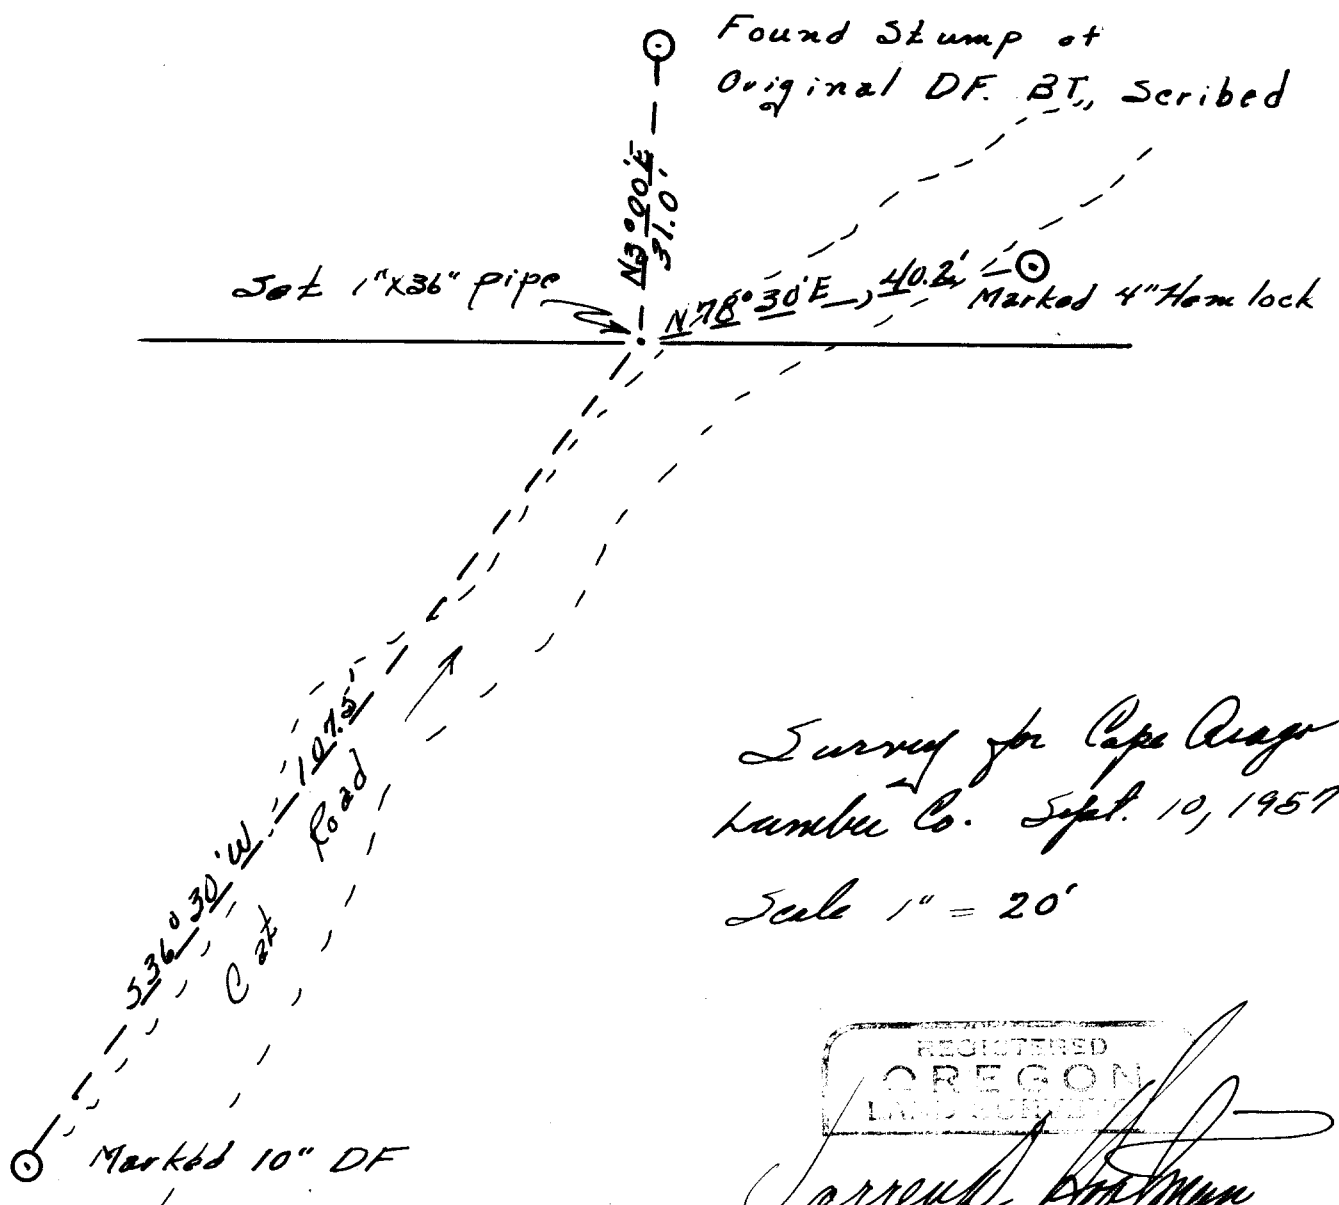 Found Stump of
Original DF. BT., Scribed
N3°00'E
31.0'
Set 1"x36" pipe
N78°30'E, 40.2'
Marked 4" Hemlock
S36°30'W. 107.5'
Cat Road
Survey for Cape Arago
Lumber Co. Sept. 10, 1957
Scale 1" = 20'
REGISTERED
OREGON
LAND
Marked 10" DF